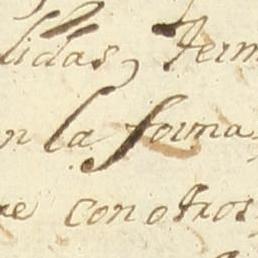 lidas, Term
n la forma
re con otros